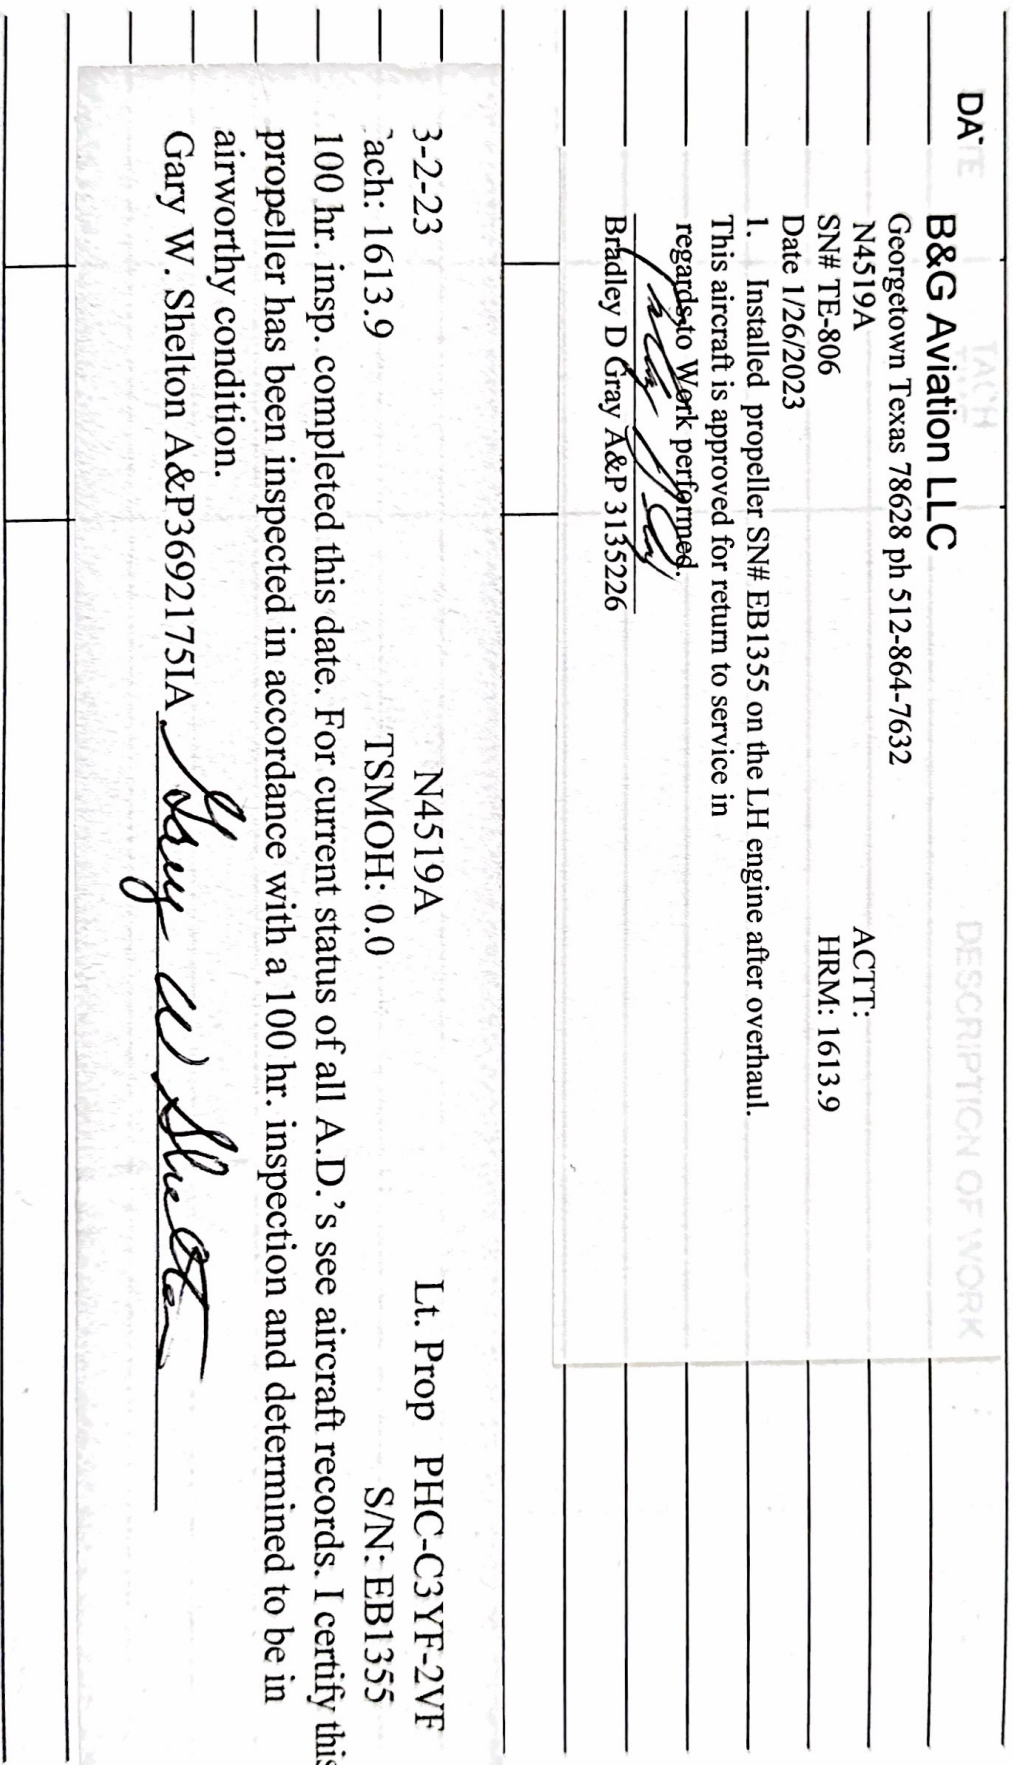 DATE TACH DESCRIPTION OF WORK
B&G Aviation LLC
Georgetown Texas 78628 ph 512-864-7632
N4519A ACTT:
SN# TE-806 HRM: 1613.9
Date 1/26/2023
1. Installed propeller SN# EB1355 on the LH engine after overhaul.
This aircraft is approved for return to service in
regards to Work performed.
Bradley D Gray A&P 3135226
3-2-23 N4519A Lt. Prop PHC-C3YF-2VF
ach: 1613.9 TSMOH: 0.0 S/N: EB1355
100 hr. insp. completed this date. For current status of all A.D.'s see aircraft records. I certify this
propeller has been inspected in accordance with a 100 hr. inspection and determined to be in
airworthy condition.
Gary W. Shelton A&P3692175IA Gary W Shelton